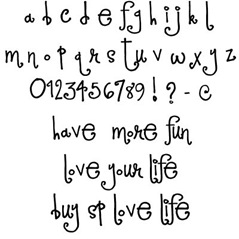 a b c d e f g h i j k l
m n o p q r s t u v w x y z
0123456789!?-c
have more fun
love your life
buy sp love life